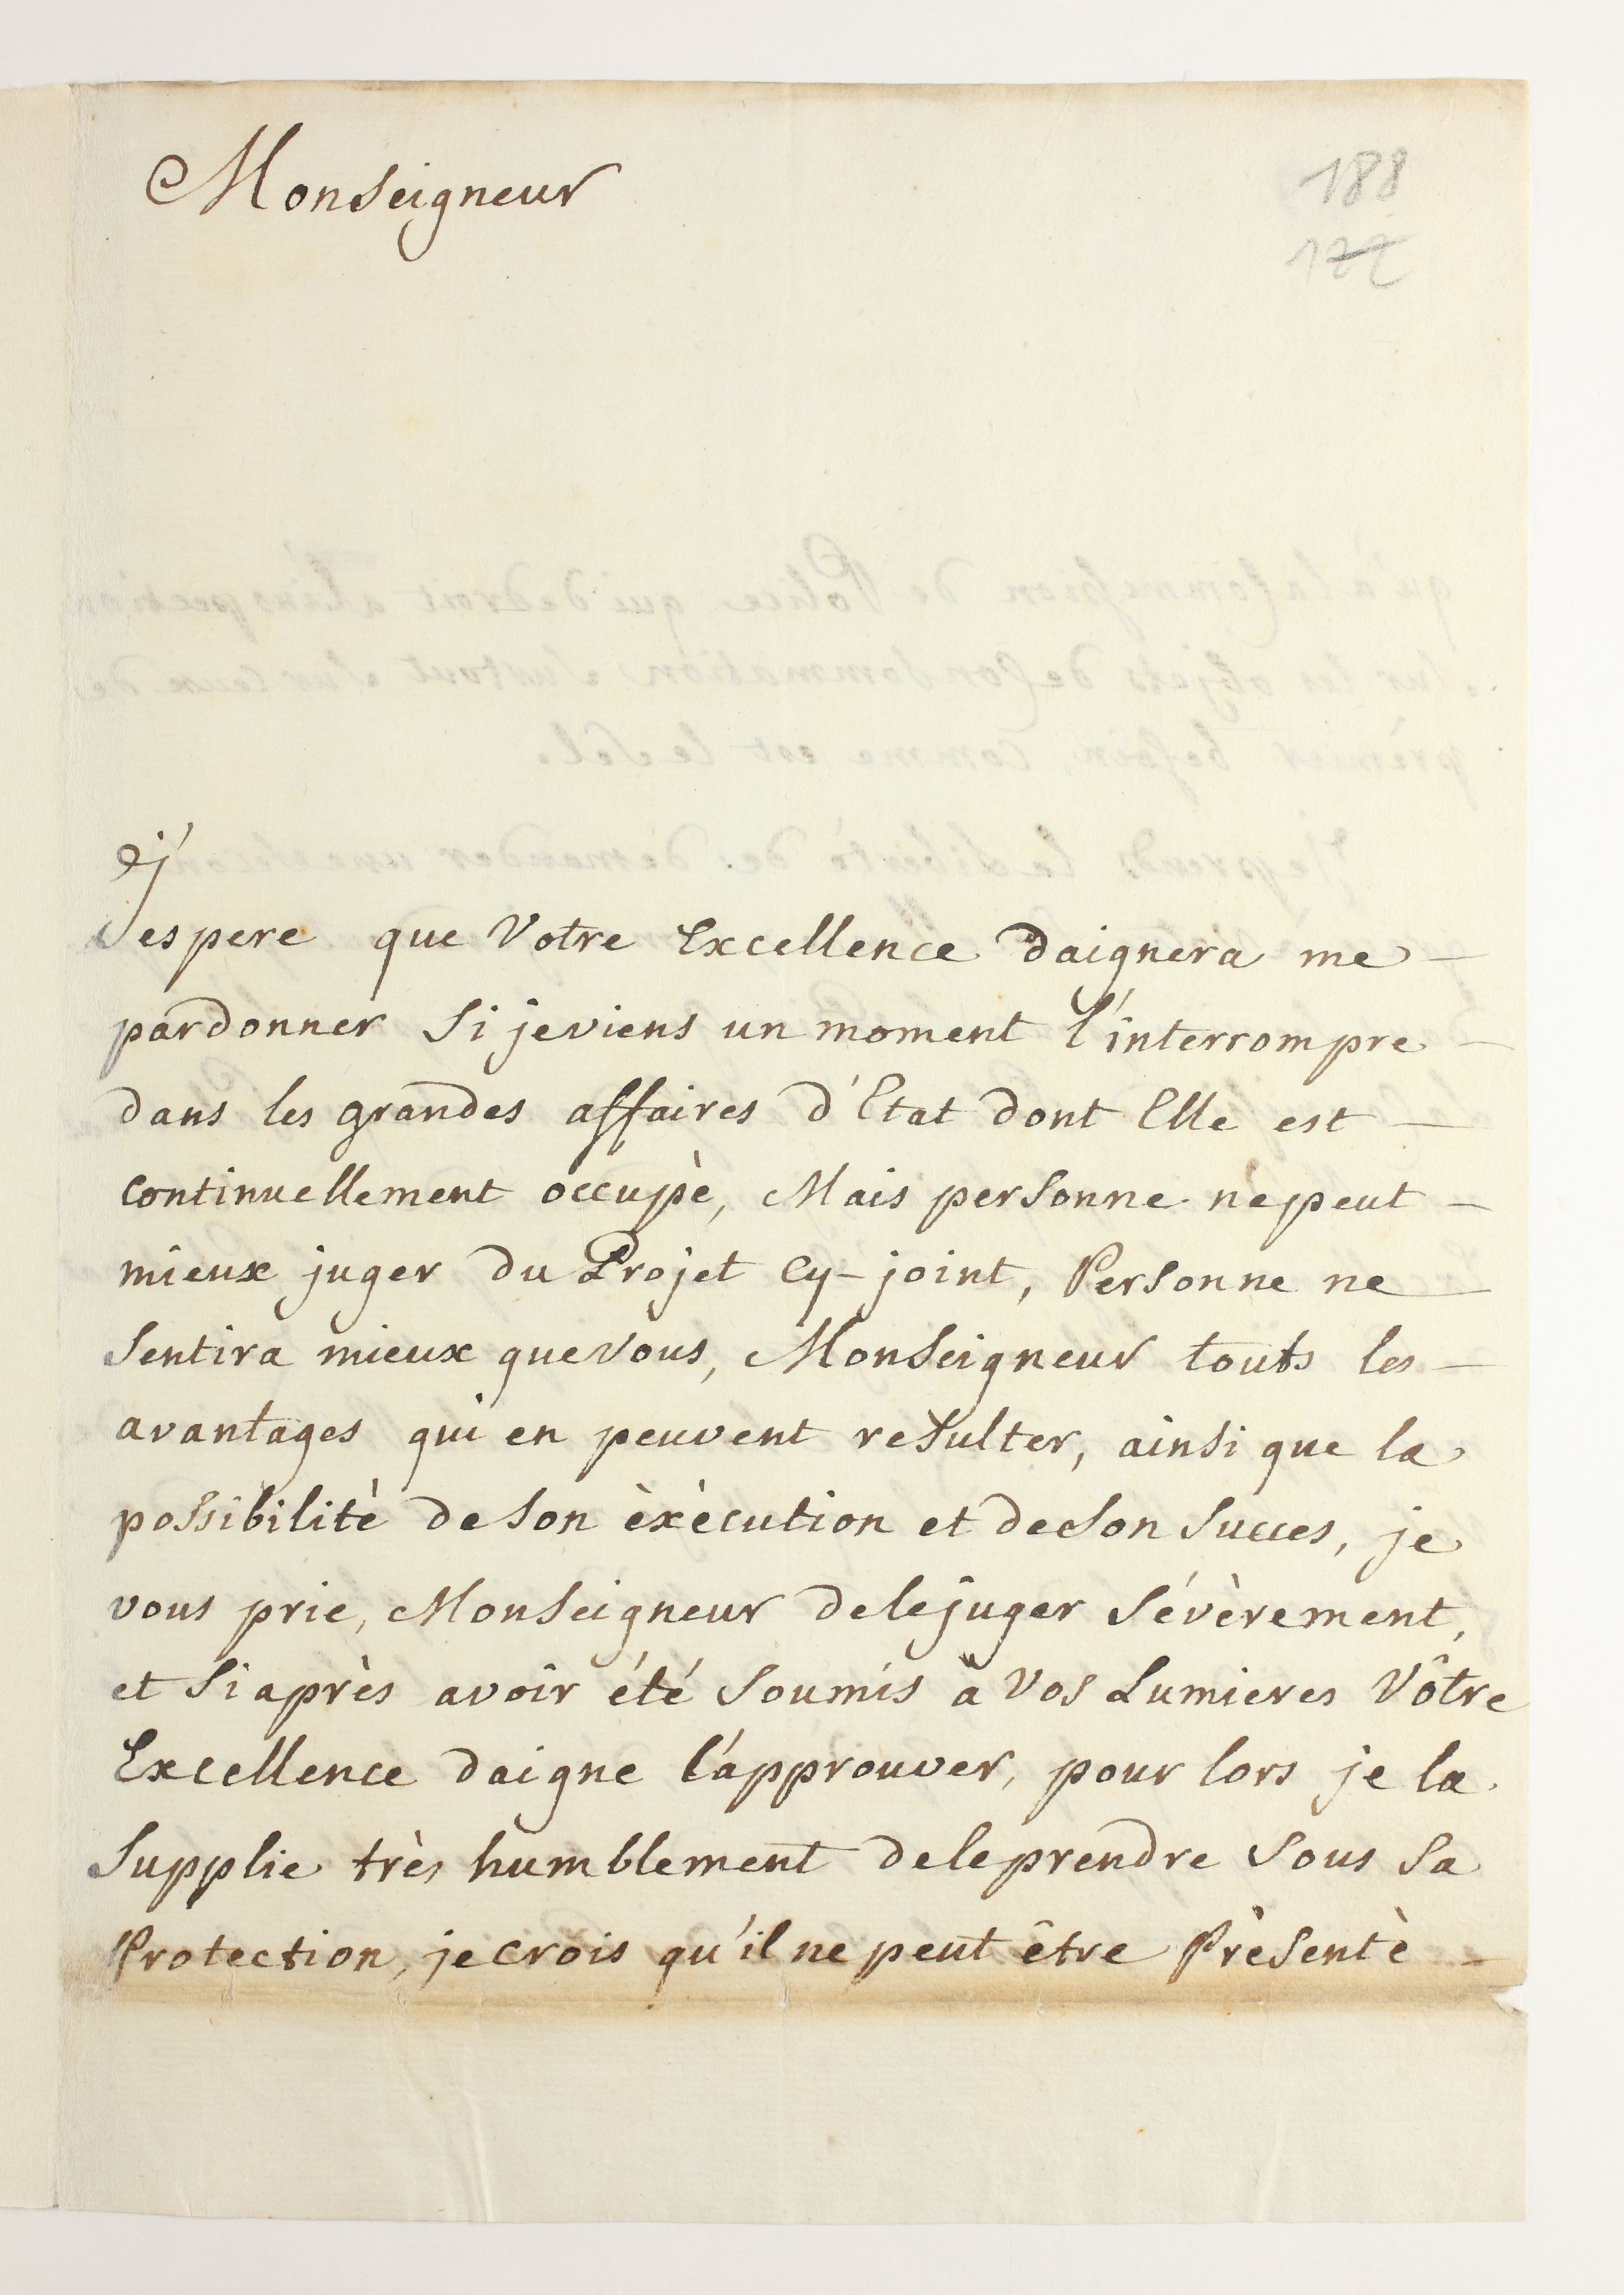 Monseigneur
188
177
j'
espere que Votre Excellence daignera me -
pardonner si je viens un moment l'interrompre -
dans les grandes affaires d'Etat dont Elle est -
continuellement occupè, Mais personne ne peut -
mieux juger du Projet Cy-joint, Personne ne -
sentira mieux que vous, Monseigneur touts les -
avantages qui en peuvent resulter, ainsi que la
possibilitè de son èxècution et de son succes, je
vous prie, Monseigneur de le juger sévèrement,
et si après avoir été soumis à vos Lumieres Vôtre
Excellence daigne l'approuver, pour lors je la
supplie très humblement de le prendre sous sa
Protection, je crois qu'il ne peut être Prèsentè -